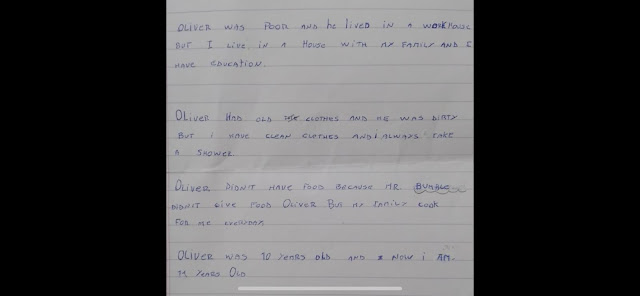 OLIVER WAS POOR AND he LIVED IN A WORKHOUSE
BUT I LIVE IN A HOUSE WITH MY FAMILY AND I
HAVE EDUCATION.
OLIVER HAD OLD CLOTHES AND HE WAS DIRTY
BUT I HAVE CLEAN CLOTHES AND I ALWAYS TAKE
A SHOWER
OLIVER DIDN'T HAVE FOOD BECAUSE MR. BUMBLE
DIDN'T GIVE FOOD OLIVER BUT MY FAMILY COOK
FOR ME EVERYDAY
OLIVER WAS 10 YEARS OLD AND NOW I AM
11 YEARS OLD